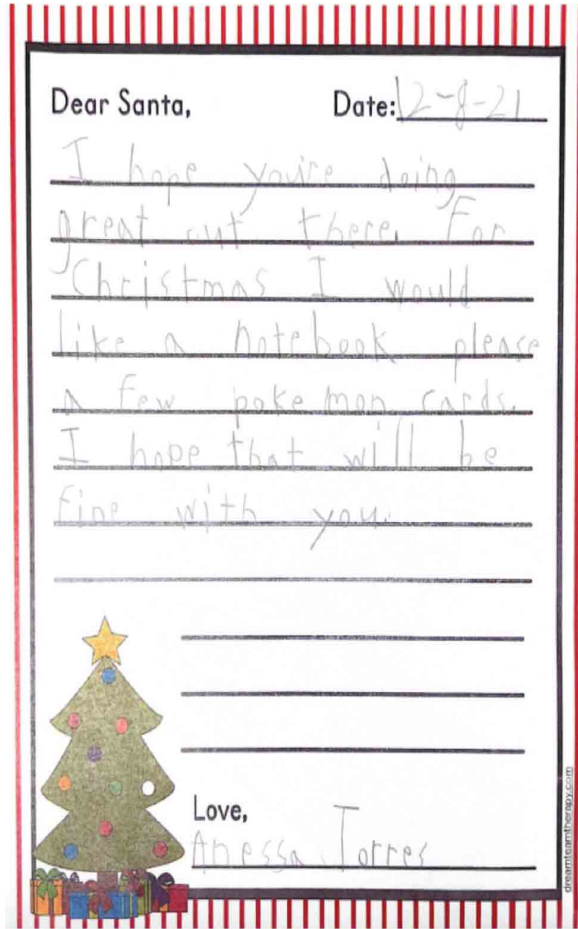 Dear Santa, Date: 12-8-21
I hope you're doing
great out there. For
Christmas I would
like a notebook please
a few poke mon cards.
I hope that will be
fine with you.
Love,
Anessa Torres
dreamteamtherapy.com